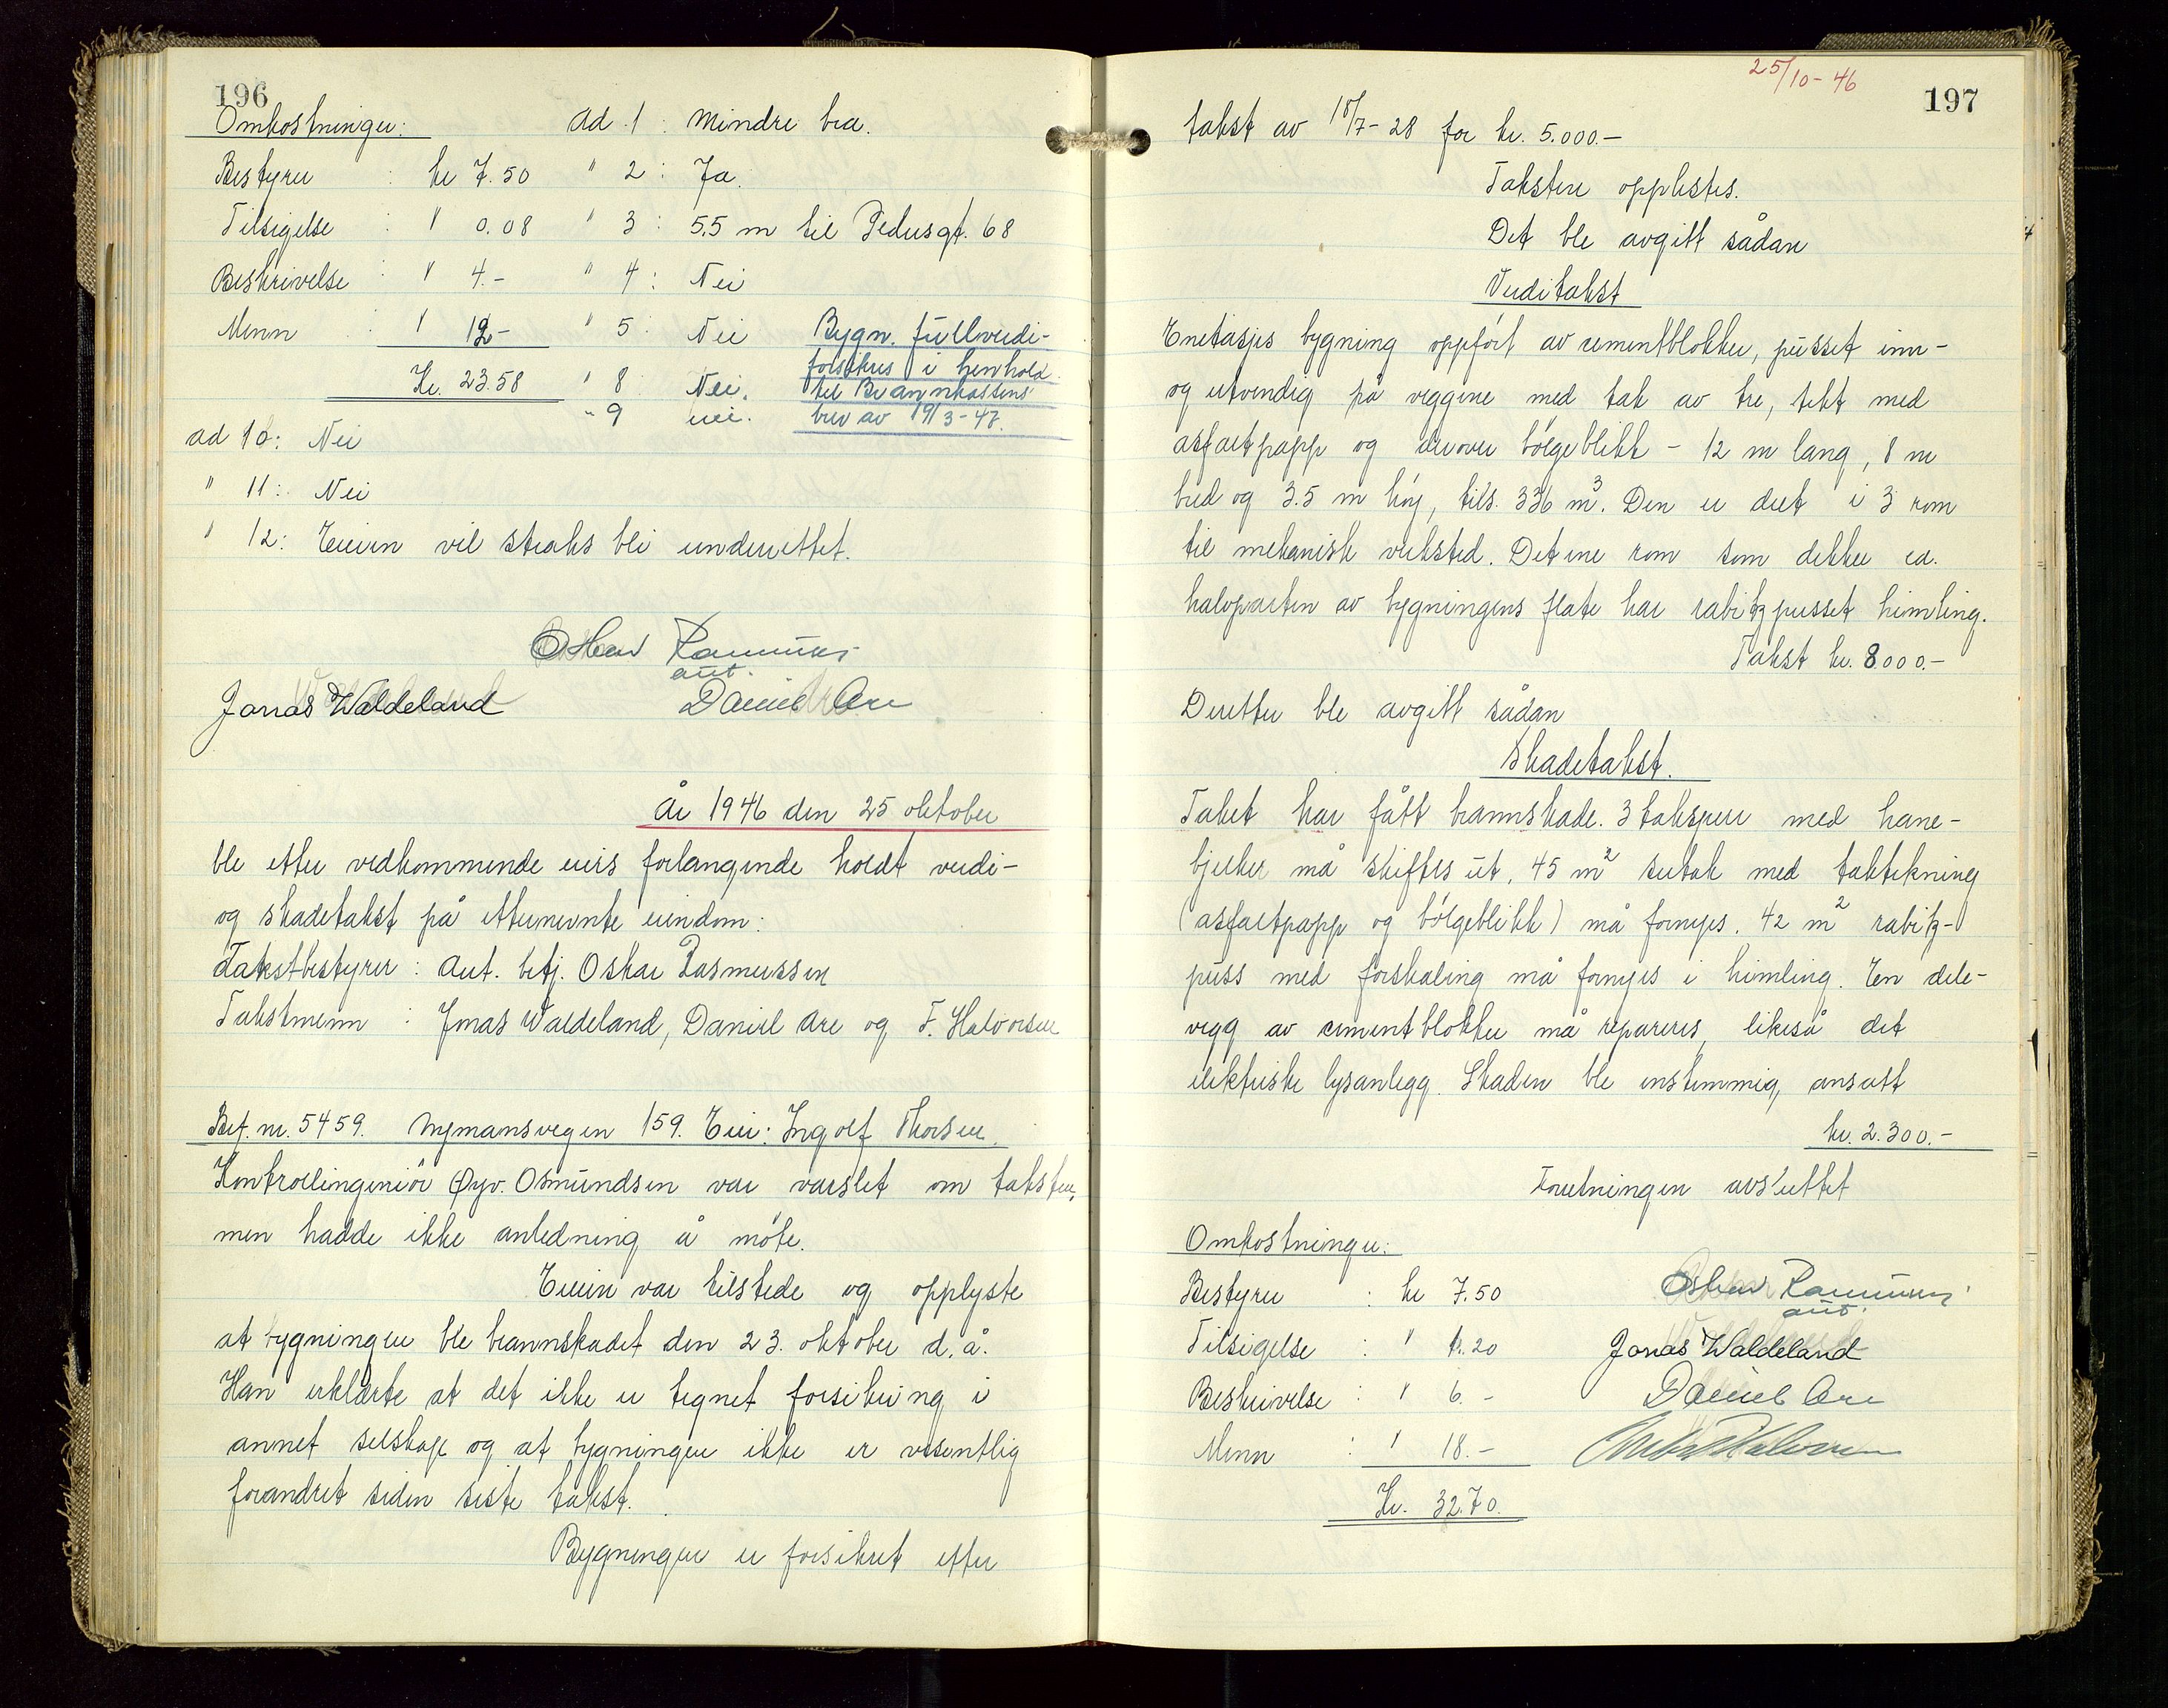 196
Omkostninger: ad 1: Mindre bra.
Bestyrer : kr 7.50 " 2: Ja.
Tilsigelse : " 0.08 " 3: 5.5 m til Pedersgt. 68
Beskrivelse : " 4.- " 4: Nei
Menn : " 12- " 5: Nei
Kr. 23.58 " 8 Nei.
" 9 nei.
Bygn. fullverdi-
forsikres i henhold
til Brannkassens
brev av 19/3-47.
ad 10: Nei
" 11: Nei
" 12: Eieren vil straks bli underrettet.
Oskar Rasmussen
aut.
Jonas Waldeland Daniel Are
År 1946 den 25 oktober
ble etter vedkommende eiers forlangende holdt verdi-
og skadetakst på etternevnte eiendom:
Takstbestyrer: Aut. betj. Oskar Rasmussen
Takstmenn : Jonas Waldeland, Daniel Are og F. Halvorsen
Bef. nr. 5459. Nymansvegen 159. Eier: Ingolf Thorsen.
Kontrollingeniør Øyv. Osmundsen var varslet om taksten,
men hadde ikke anledning å møte.
Eieren var tilstede og opplyste
at bygningen ble brannskadet den 23. oktober d.å.
Han erklærte at det ikke er tegnet forsikring i
annet selskap og at bygningen ikke er vesentlig
forandret siden siste takst.
Bygningen er forsikret efter
25/10-46
197
takst av 18/7-28 for kr. 5.000.-
Taksten opplestes.
Det ble avgitt sådan
Verditakst
Enetasjes bygning oppført av cementblokker, pusset inn-
og utvendig på veggene med tak av tre, tekt med
asfaltpapp og derover bølgeblikk - 12 m lang, 8 m
bred og 3.5 m høy, tils. 336 m³. Den er delt i 3 rom
til mekanisk verksted. Det ene rom som dekker ca.
halvparten av bygningens flate har rabitzpusset himling.
Takst kr. 8000.-
Deretter ble avgitt sådan
Skadetakst.
Taket har fått brannskade. 3 taksperr med hane-
bjelker må skiftes ut. 45 m² sutak med taktekning
(asfaltpapp og bølgeblikk) må fornyes. 42 m² rabitz-
puss med forskaling må fornyes i himling. En dele-
vegg av cementblokker må repareres, likeså det
elektriske lysanlegg. Skaden ble enstemmig, ansatt
kr. 2.300.-
Forretningen avsluttet
Omkostninger:
Bestyrer : kr 7.50
Tilsigelse : " 1.20
Beskrivelse : " 6.-
Menn : " 18.-
Kr. 32.70.
Oskar Rasmussen
aut.
Jonas Waldeland
Daniel Are
Halvorsen